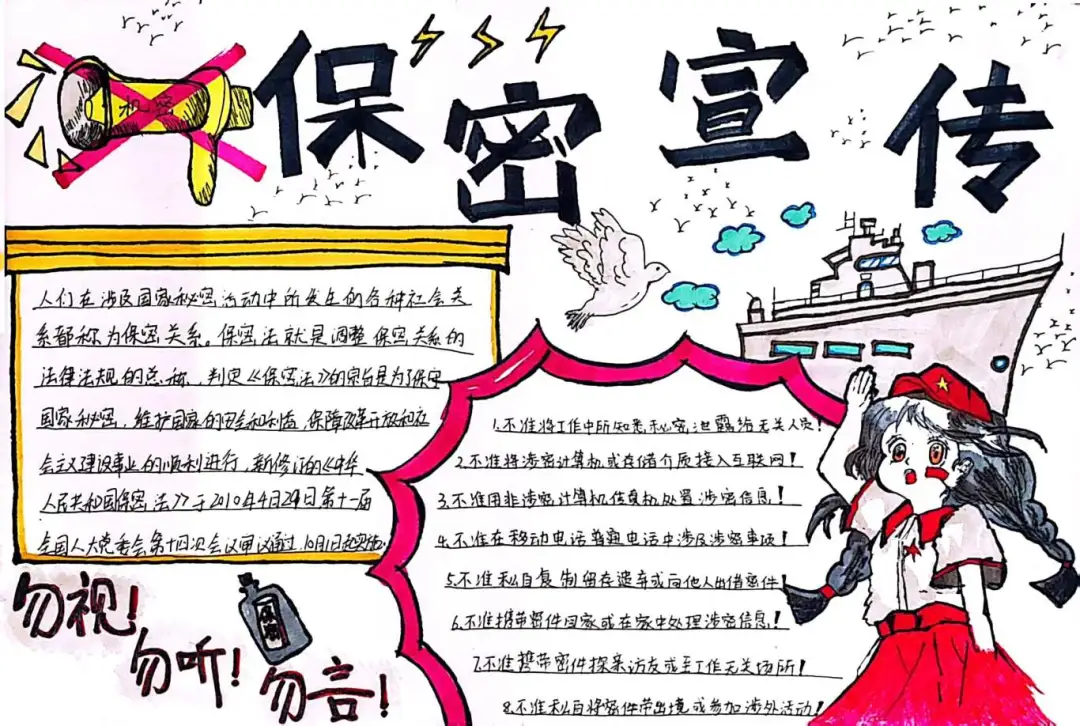 机密
保密宣传
人们在涉及国家秘密活动中所发生的各种社会关
系都称为保密关系。保密法就是调整保密关系的
法律法规的总称。判定《保密法》的宗旨是为了保守
国家秘密,维护国家的安全和利益,保障改革开放和社
会主义建设事业的顺利进行,新修订的《中华
人民共和国保密法》于2010年4月29日第十一届
全国人大常委会第十四次会议审议通过10月1日起实施
1.不准将工作中所知悉秘密泄露给无关人员!
2.不准将涉密计算机或存储介质接入互联网!
3.不准用非涉密计算机信息机处置涉密信息!
4.不准在移动电话普通电话中涉及涉密事项!
5.不准私自复制留存遗弃或向他人出借密件!
6.不准携带密件回家或在家中处理涉密信息!
7.不准携带密件探亲访友或至工作无关场所!
8.不准私自将密件带出境或参加涉外活动!
勿视!
勿听!
勿言!